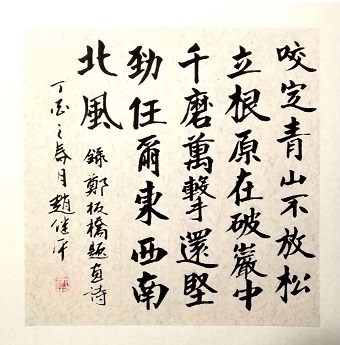 咬定青山不放松
立根原在破巖中
千磨萬擊還堅
勁任爾東西南
北風
錄鄭板橋題畫詩
丁酉之春月趙平